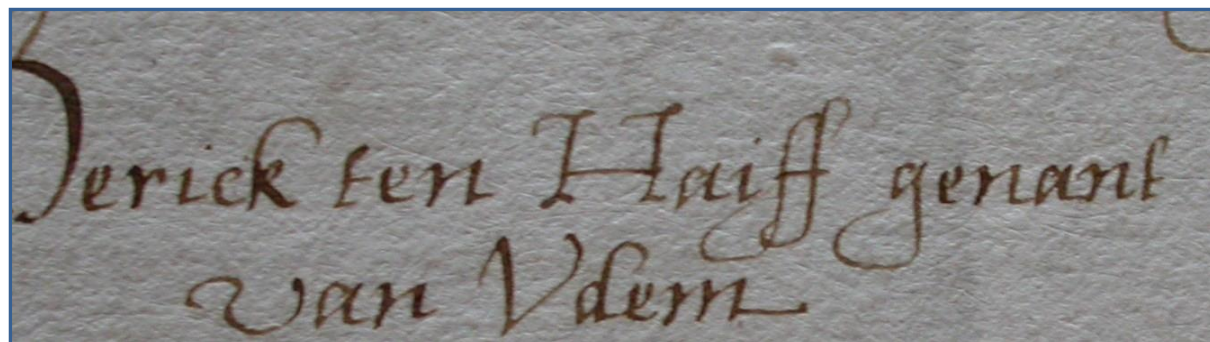 Derick ten Haiff genant
van Vdem